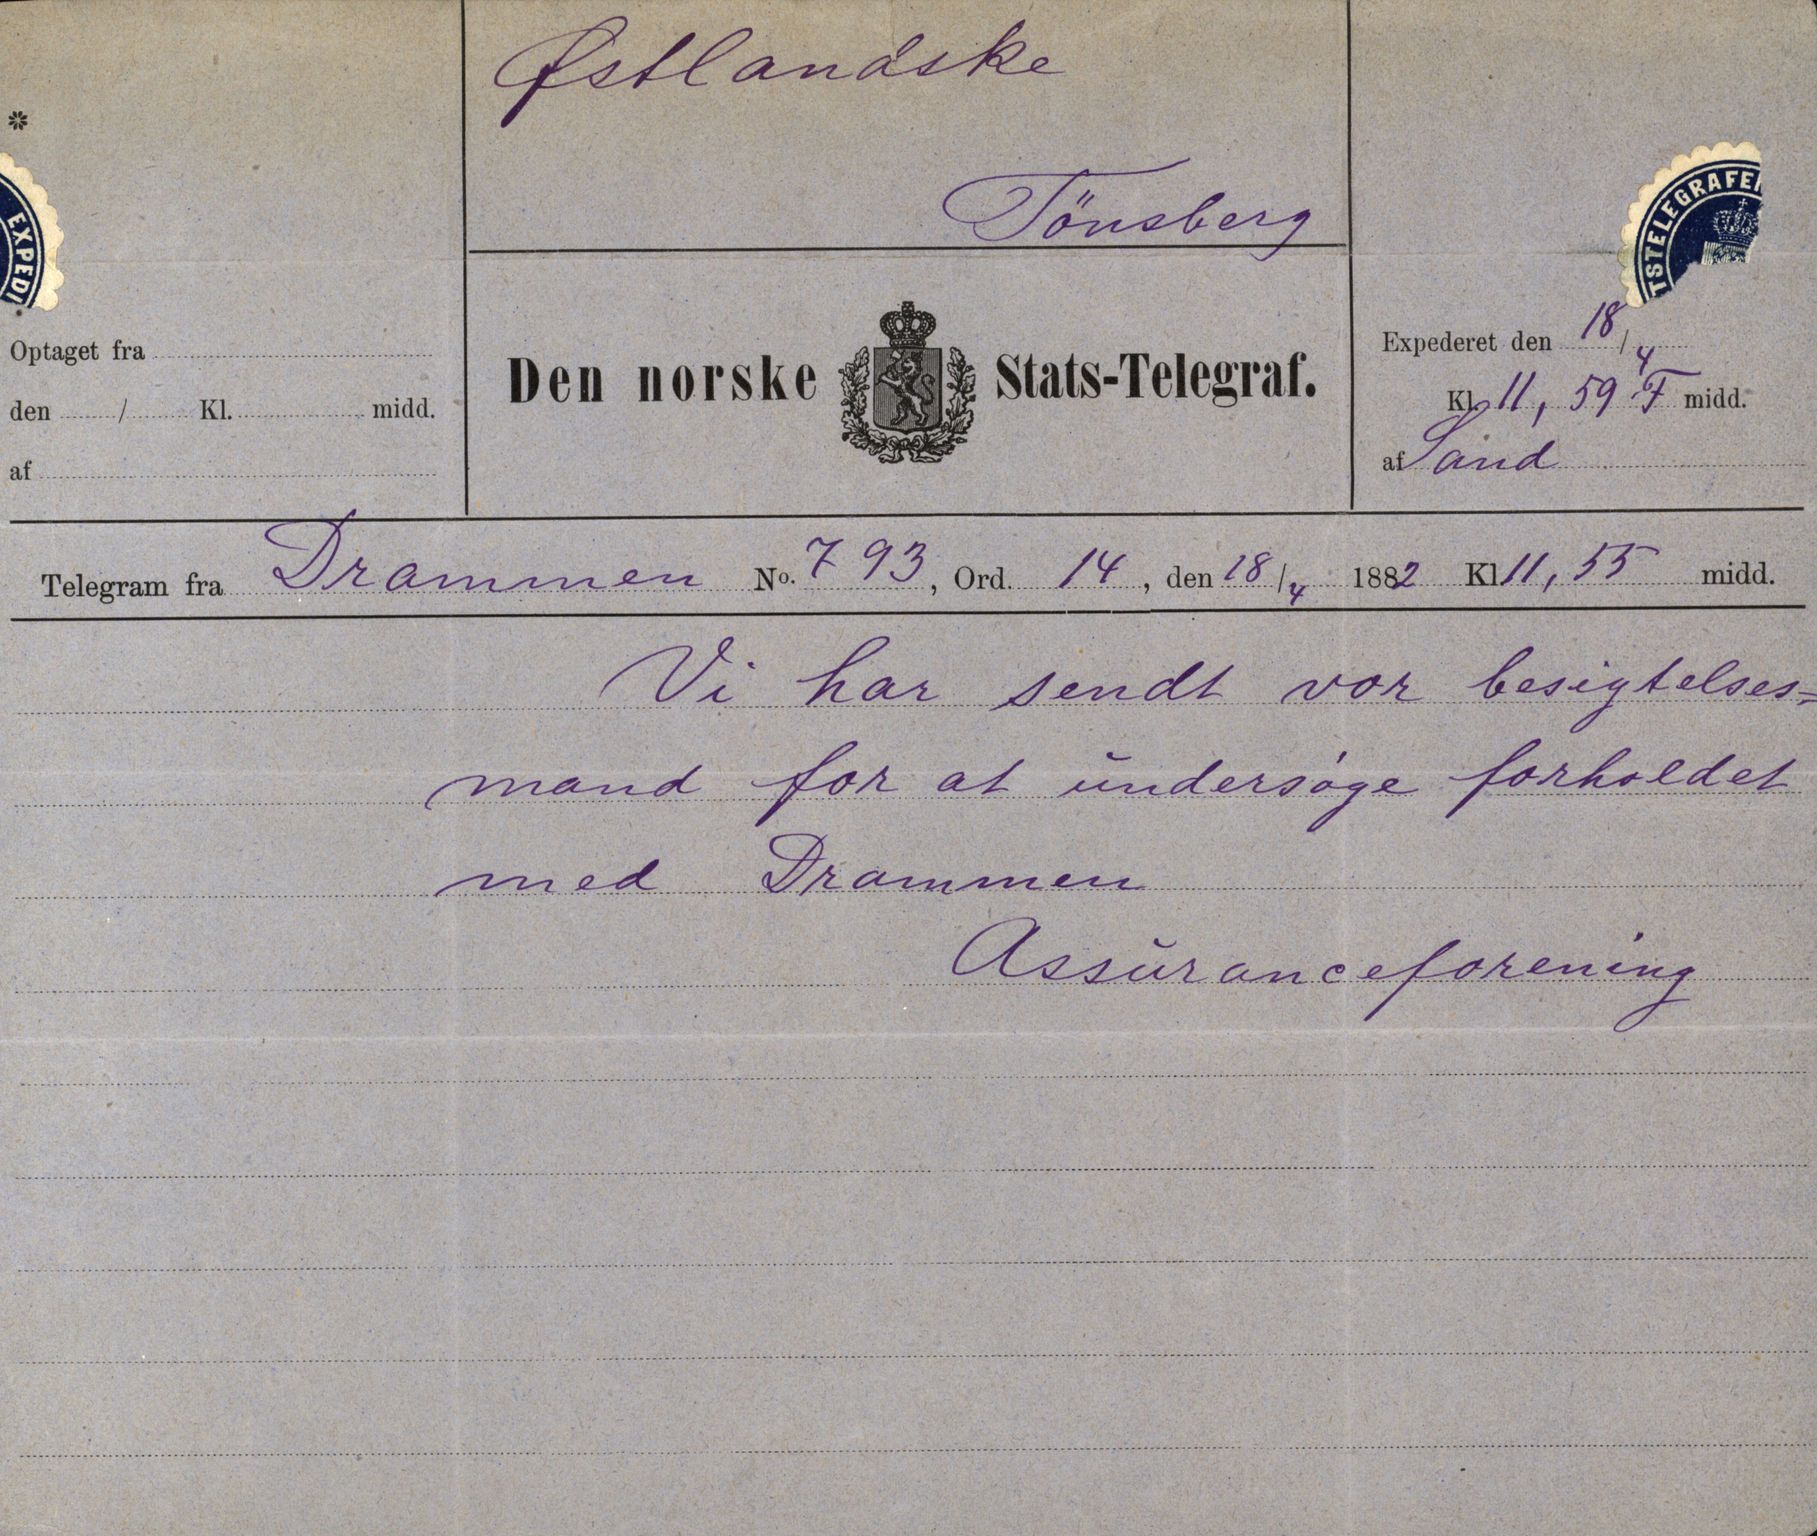 Østlandske
Tönsberg
*
EXPEDI
TSTELEGRAFE
Optaget fra
den / Kl. midd.
af
Den norske Stats-Telegraf.
Expederet den 18/4
Kl. 11,59 F midd.
af Sand
Telegram fra Drammen No. 793, Ord. 14, den 18/4 1882 Kl. 11,55 midd.
Vi har sendt vor besigtelses=
mand for at undersøge forholdet
med Drammen
Assuranceforening